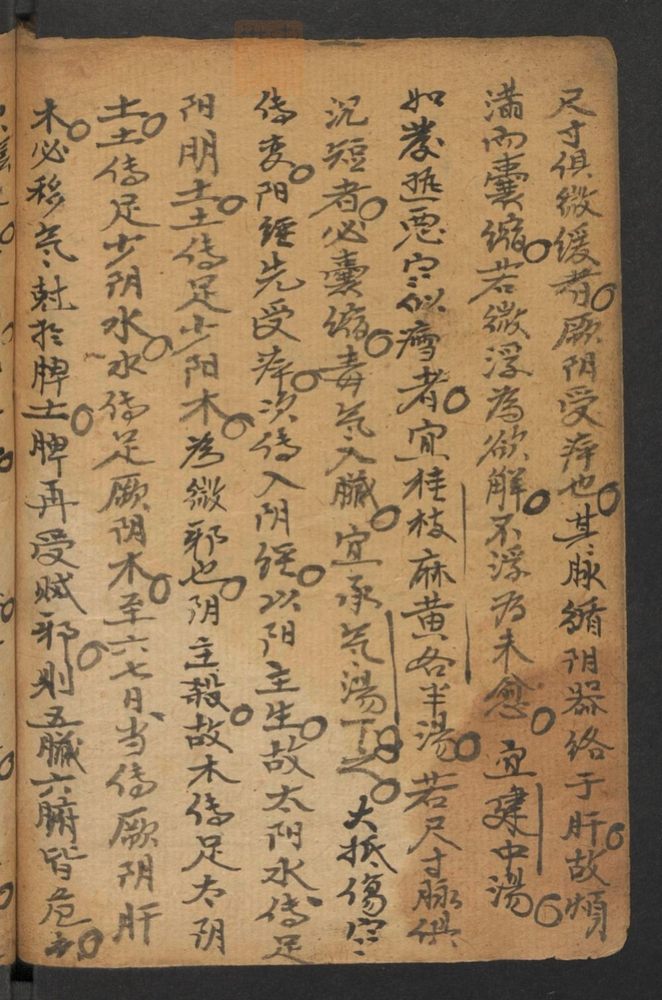 尺寸俱微缓者厥阴受病也其脉循阴器络于肝故烦
满而囊缩若微浮為欲解不浮为未愈宜建中湯
如發热恶寒似瘧者宜桂枝麻黄各半湯若尺寸脉俱
沉短者必囊缩毒气入臓宜承气湯下之大抵傷寒
傳变阳經先受病次傳入阴經以阳主生故太阳水傳足
阳明土土傳足少阳木為微邪也阴主殺故木傳足太阴
土土傳足少阴水水傳足厥阴木至六七日当傳厥阴肝
木必移气尅於脾土脾再受贼邪则五臓六腑皆危